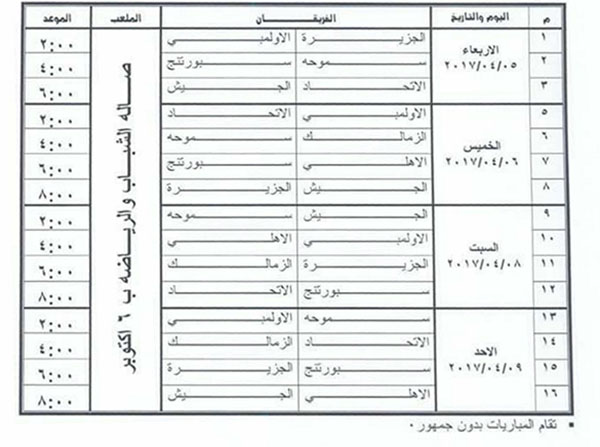 م اليوم والتاريخ الفريقان الملعب الموعد
١ الاربعاء ٢٠١٧/٠٤/٠٥ الجزيرة الاولمبي صاله الشباب والرياضه ب ٦ اكتوبر ٢:٠٠
٢ سموحه سبورتنج ٤:٠٠
٣ الاتحاد الجيش ٦:٠٠
٥ الخميس ٢٠١٧/٠٤/٠٦ الاولمبي الاتحاد ٢:٠٠
٦ الزمالك سموحه ٤:٠٠
٧ الاهلي سبورتنج ٦:٠٠
٨ الجيش الجزيرة ٨:٠٠
٩ السبت ٢٠١٧/٠٤/٠٨ الجيش سموحه ٢:٠٠
١٠ الاولمبي الاهلي ٤:٠٠
١١ الجزيرة الزمالك ٦:٠٠
١٢ سبورتنج الاتحاد ٨:٠٠
١٣ الاحد ٢٠١٧/٠٤/٠٩ سموحه الاولمبي ٢:٠٠
١٤ الاتحاد الزمالك ٤:٠٠
١٥ سبورتنج الجزيرة ٦:٠٠
١٦ الاهلي الجيش ٨:٠٠
• تقام المباريات بدون جمهور ٠